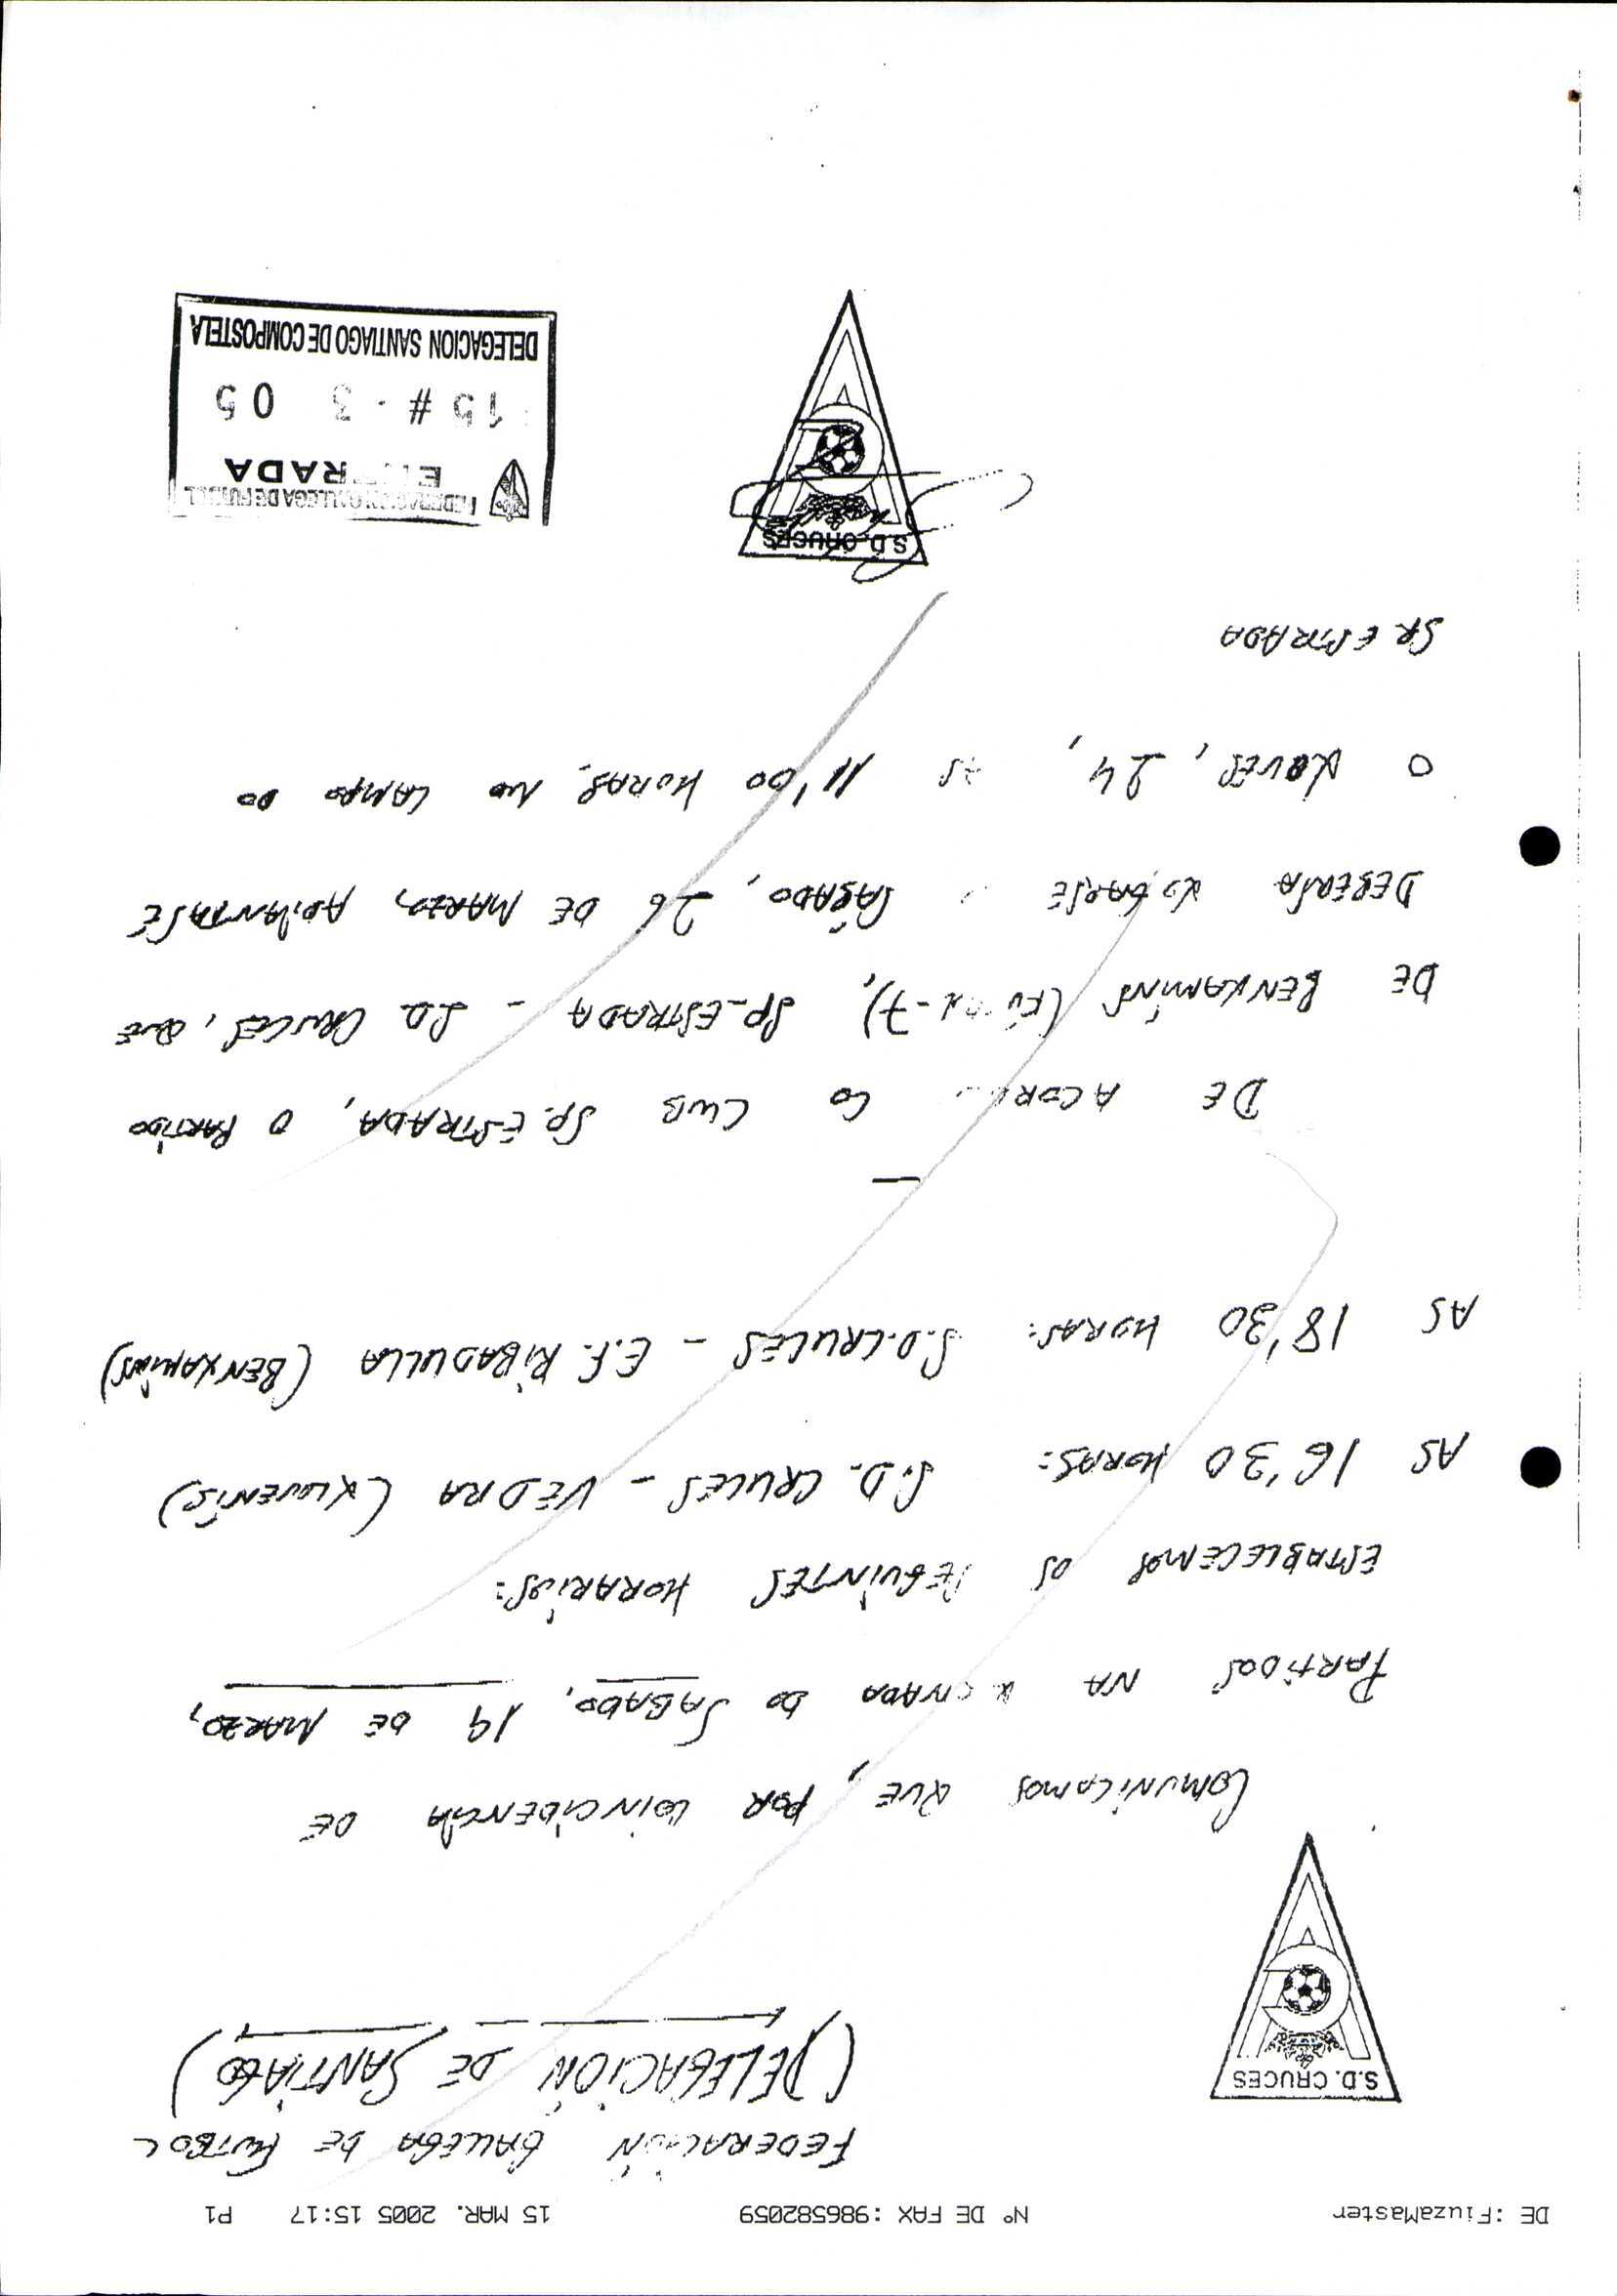 DE :FiuzaMaster Nº DE FAX :986582059 15 MAR. 2005 15:17 P1
FEDERACIÓN GALLEGA DE FUTBOL
(DELEGACIÓN DE SANTIAGO)
S.D. CRUCES
COMUNICAMOS QUE, POR COINCIDENCIA DE
PARTIDOS NA XORNADA DO SABADO, 19 DE MARZO,
ESTABLECEMOS OS SEGUINTES HORARIOS:
AS 16'30 HORAS: S.D. CRUCES - VEDRA (XUVENIS)
AS 18'30 HORAS: S.D. CRUCES - E.F. RIBADULLA (BENXAMINS)
DE ACORDO CO CLUB SP. ESTRADA, O PARTIDO
DE BENXAMINS (FÚTBOL-7), SP. ESTRADA - S.D. CRUCES, QUE
DEBERÍA XOGARSE SÁBADO, 26 DE MARZO, ADIANTASE
O XOVES, 24, AS 11'00 HORAS, NO CAMPO DO
SP. ESTRADA
S.D. CRUCES
FEDERACION GALLEGA DE FUTBOL
ENTRADA
15 # - 3 05
DELEGACION SANTIAGO DE COMPOSTELA